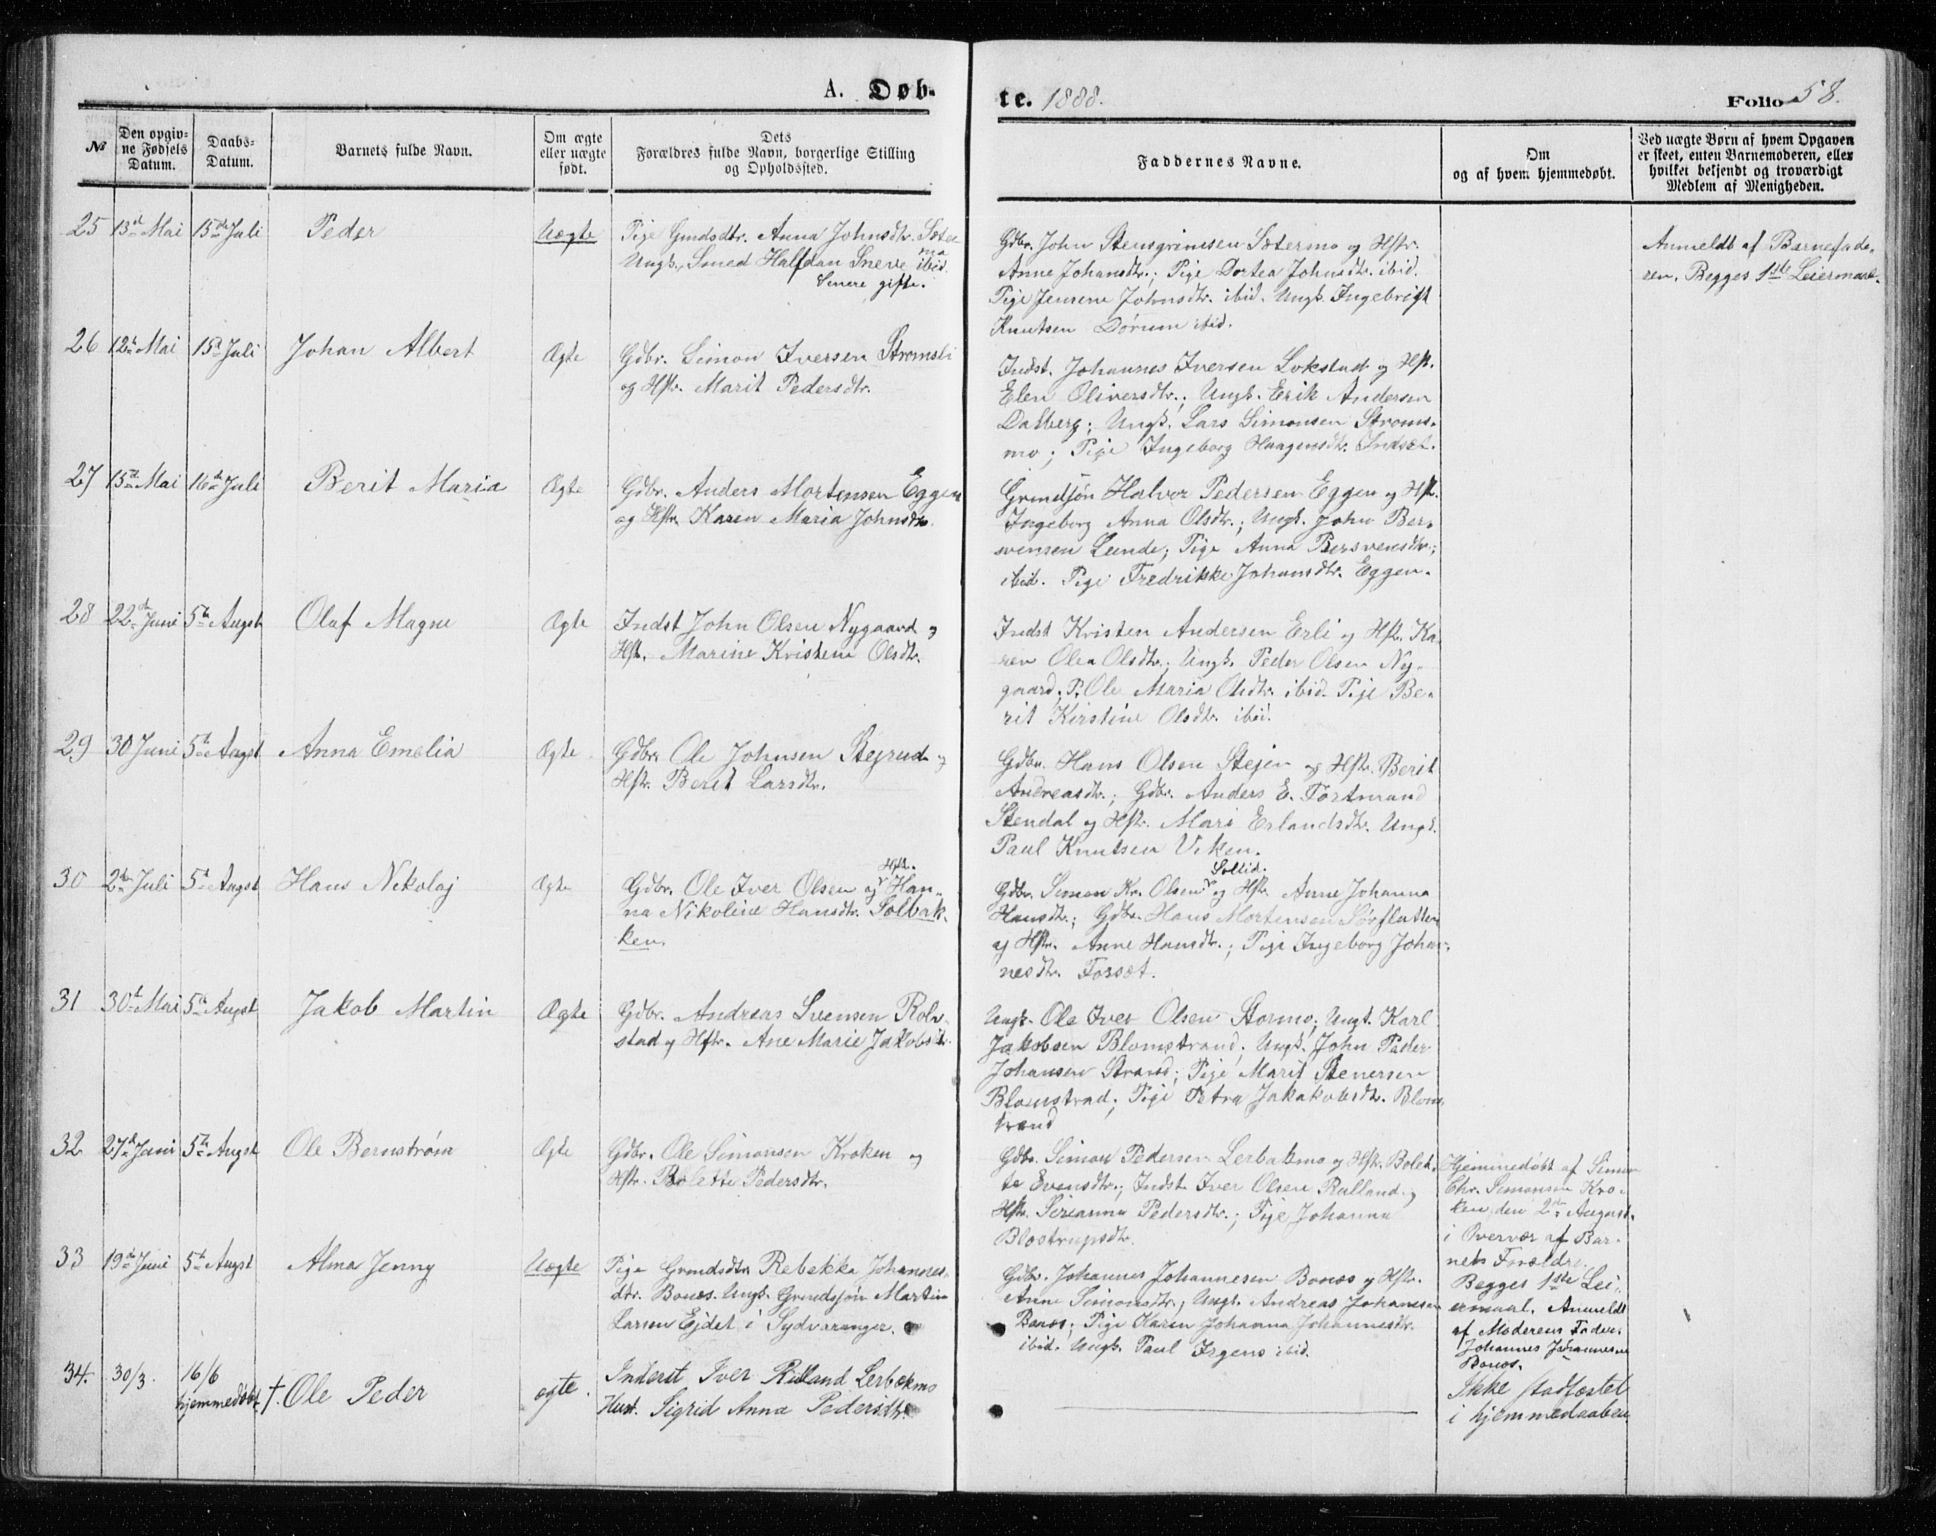 A. Døb-
te. 1888.
Folio 58.
№
Den opgiv-
ne Fødsels
Datum.
Daabs-
Datum.
Barnets fulde Navn.
Om ægte
eller uægte
født.
Dets
Forældres fulde Navn, borgerlige Stilling
og Opholdssted.
Faddernes Navne.
Om
og af hvem hjemmedøbt.
Ved uægte Børn af hvem Opgaven
er skeet, enten Barnemoderen, eller
hvilket bekjendt og troværdigt
Medlem af Menigheden.
25 13d Mai 15de Juli Peder Uægte
Pige Gmdsdtr. Anna Johnsdtr. Sæter-
mo
Ungk., Smed Halfdan Sneve ibid.
Senere gifte.
Gdbr. John Stensgrimsen Sætermo og Hstr.
Anne Johansdtr.; Pige Dortea Johnsdtr. ibid.
Pige Jensine Johnsdtr. ibid. Ungk. Ingebrigt
Knutsen Dørum ibid.
Anmeldt af Barnefade-
ren. Begges 1ste Leiermaal.
26 12te Mai 15d Juli Johan Albert Ægte
Gdbr. Simon Iversen Strømsli
og Hstr. Marit Pedersdtr.
Indst. Johannes Iversen Lokstad og Hst.
Elen Oliversdtr.; Ungk. Erik Andersen
Dalberg; Ungk. Lars Simonsen Strøms-
mo; Pige Ingeborg Haagensdtr. Indset.
27 15de Mai 16de Juli Berit Maria Ægte
Gdbr. Anders Mortensen Eggen
og Hstr. Karen Maria Johnsdtr.
Grmdsjøn Halvor Pedersen Eggen og Hst.
Ingeborg Anna Olsdtr.; Ungk. John Ber-
svensen Lunde; Pige Anna Bersvensdtr.;
ibid. Pige Fredrikke Johansdtr. Eggen.
28 22de Juni 5te Augst Olaf Magne Ægte
Indst John Olsen Nygaard og
Hst. Marine Kristene Olsdtr.
Indst Kristen Andersen Erli og Hst. Ka-
ren Olea Olsdtr.; Ungk. Peder Olsen Ny-
gaard. P. Ole Maria Olsdtr. ibid. Pige Be-
rit Kirstine Olsdtr. ibid.
29 30 Juni 5te Augst Anna Emelia Ægte
Gdbr. Ole Johnsen Stejrud og
Hstr. Berit Larsdtr.
Gdbr. Hans Olsen Stejen og Hstr. Berit
Andreasdtr.; Gdbr. Anders E. Fortmand
Stendal og Hstr. Mari Erlandsdtr. Ungk.
Paul Knutsen Viken.
30 2den Juli 5te Augst Hans Nikolaj Ægte
Hst.
Gdbr. Ole Iver Olsen og Han-
na Nikoline Hansdtr. Solbak-
ken.
Sollid.
Gdbr. Simon Kr. Olsen og Hst. Anne Johanna
Hansdtr.; Gdbr. Hans Mortensen Sørflatten
og Hstr. Anne Hansdtr.; Pige Ingeborg Johan-
nesdtr. Forset.
31 30te Mai 5te Augst Jakob Martin Ægte
Gdbr. Andreas Svensen Rolv-
stad og Hstr. Ane Marie Jakobsdtr.
Ungk. Ole Iver Olsen Stormo; Ungk. Karl
Jakobsen Blomstrand; Ungk. John Peder
Johansen Strand; Pige Marit Stenersen
Blomstrad; Pige Petra Jakakobsdtr. Blom-
strand
32 27de Juni 5te Augst Ole Bernstrøm Ægte
Gdbr. Ole Simonsen Kroken og
Hstr. Bolette Pedersdtr.
Gdbr. Simon Pedersen Lerbakmo og Hstr. Bolet-
te Evensdtr.; Indst. Iver Olsen Rulland og
Hstr. Serianna Pedersdtr.; Pige Johanna
Blostrupsdtr.
Hjemmedøbt af Simon
Chr. Simonsen Kro-
ken, den 2den August,
i Overvær af Bar-
nets Forældre.
33 19de Juni 5te Augst Alma Jenny Uægte
Pige Grmdsdtr. Rebekka Johannes-
dtr. Bonæs. Ungk. Grmdsjøn Martin
Larsen Ejdet i Sydvaranger.
Gdbr. Johannes Johannesen Bonæs og Hstr.
Anne Simonsdtr.; Ungk. Andreas Johansen
Bonæs; Pige Karen Johanna Johannesdtr.
ibid. Ungk. Paul Irgens ibid.
Begges 1ste Lei-
ermaal. Anmeldt
af Moderens Fader,
Johannes Johannesen
Bonæs.
34. 30/3. 16/6
hjemmedøbt †. Ole Peder ægte.
Inderst Iver Rulland Lerbækmo
Hust. Sigrid Anna Pedersdtr.
Ikke stadfæstet
i hjemmedaaben